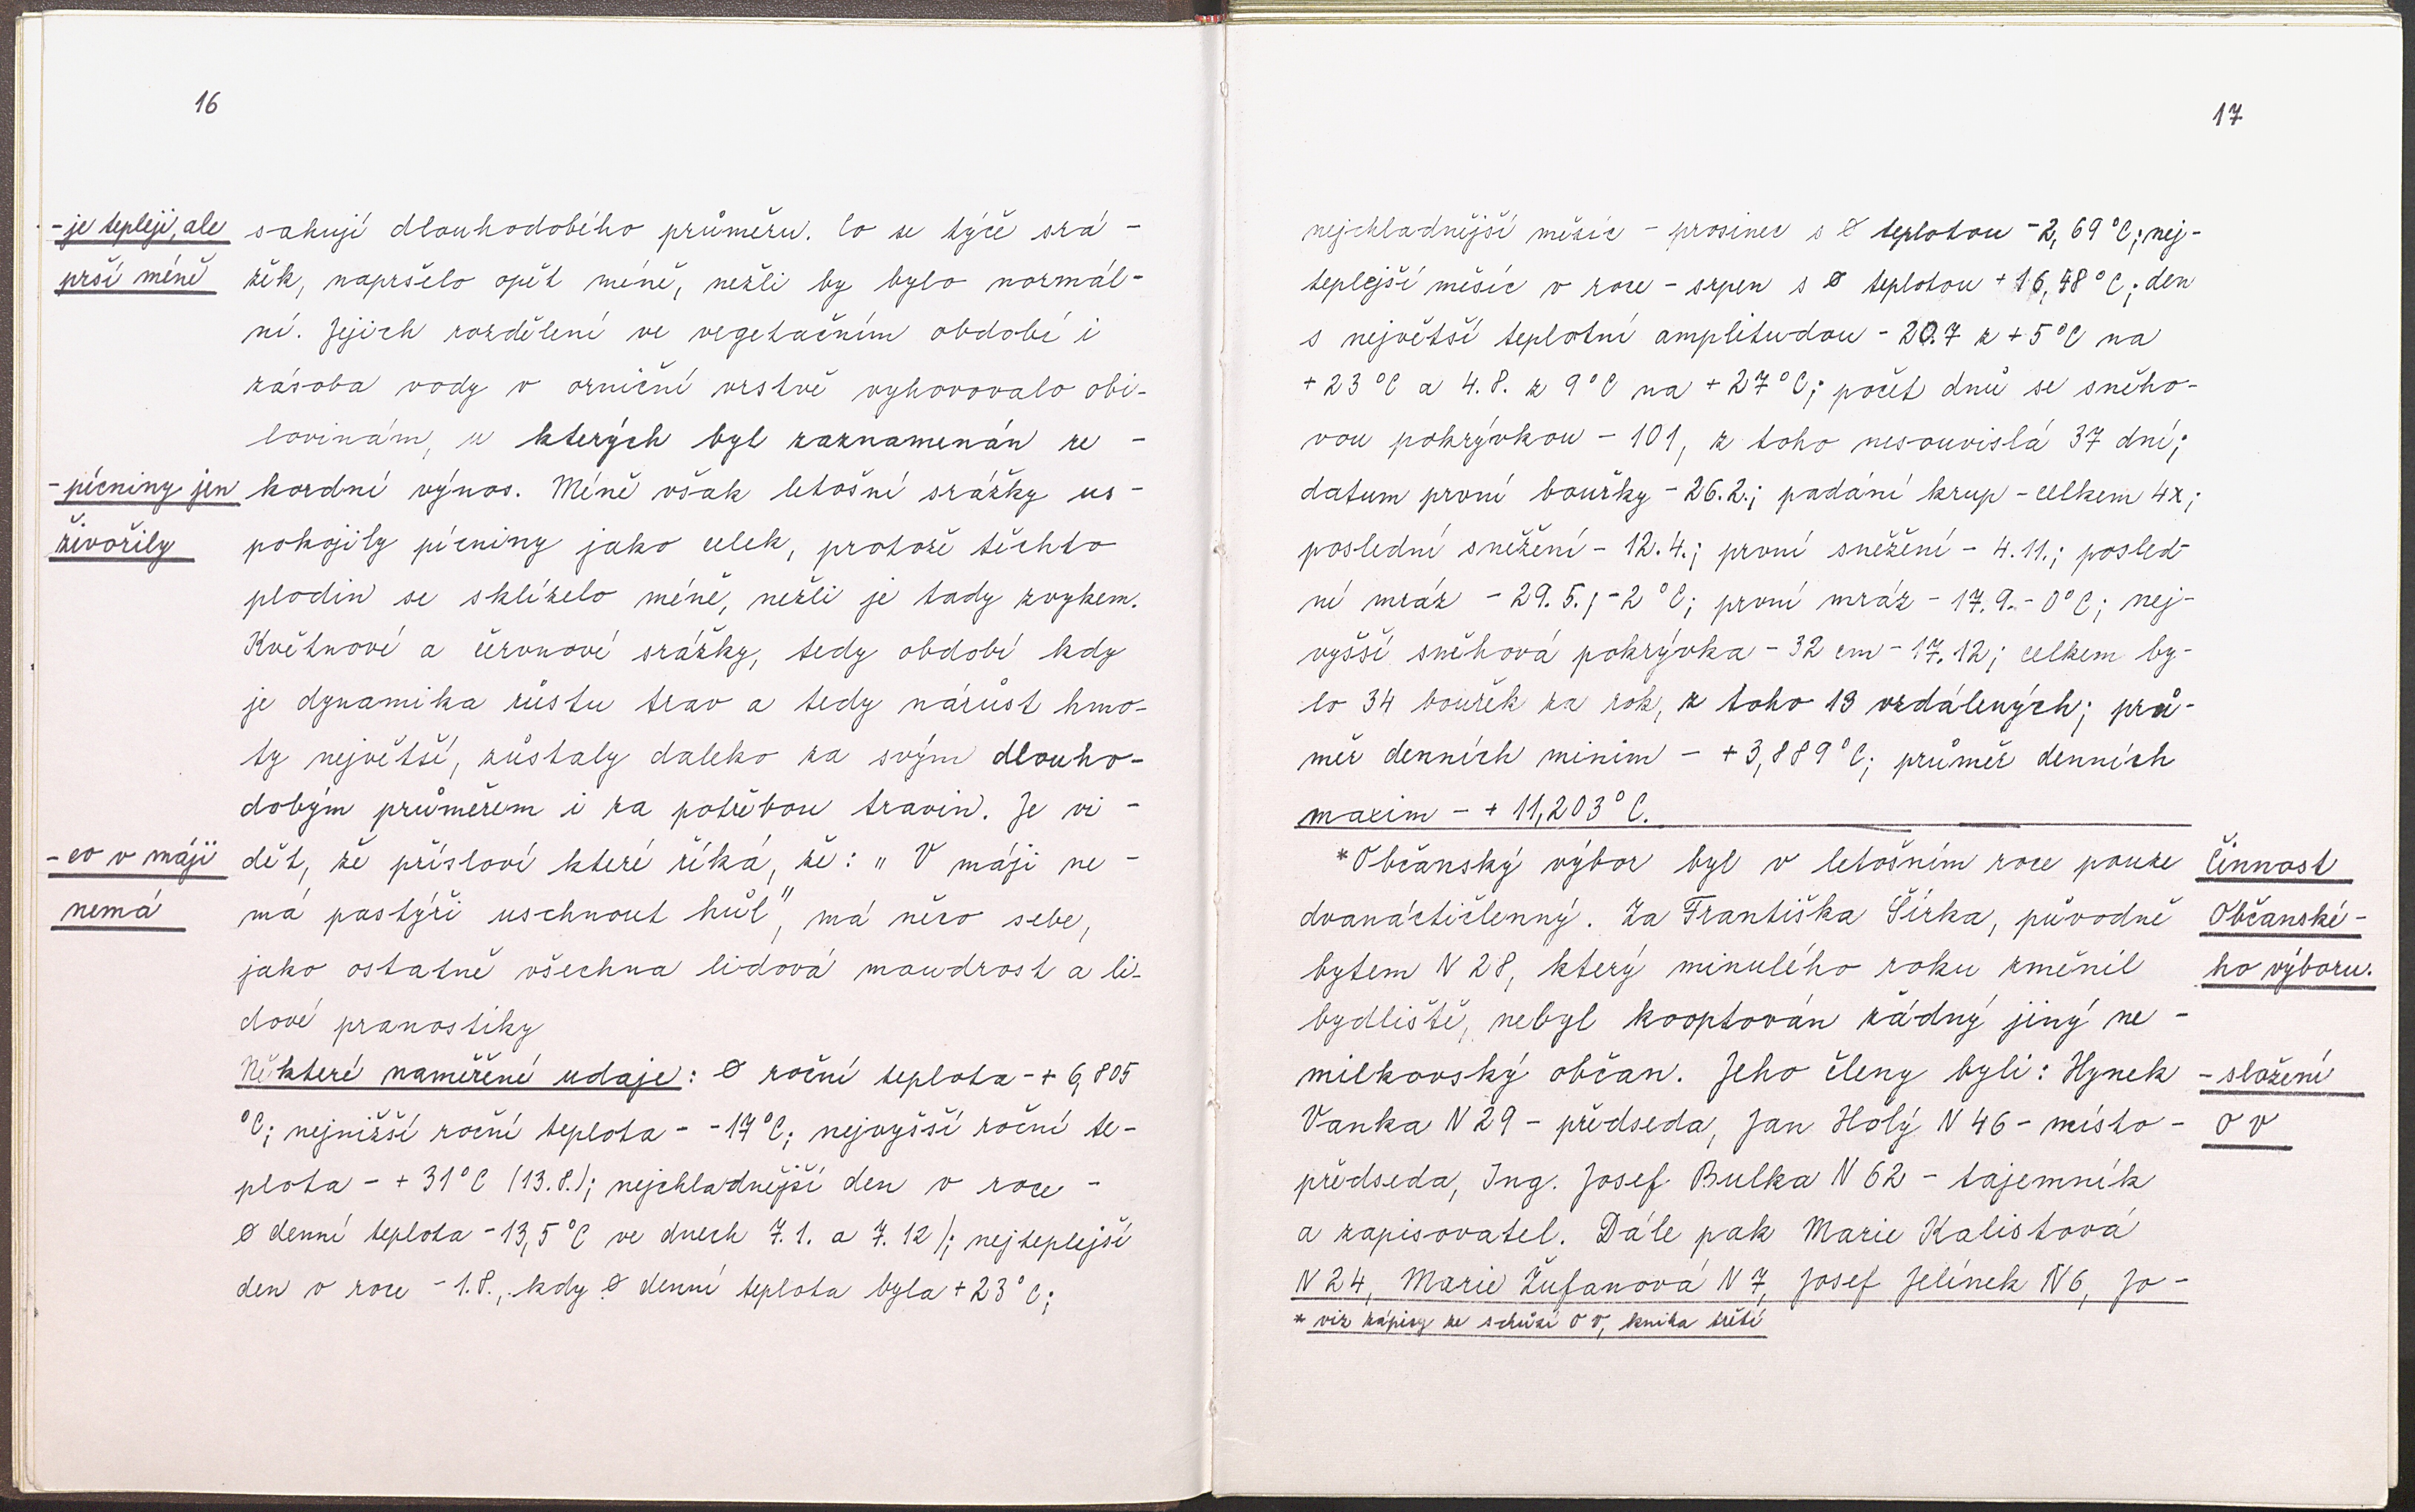 16
- je tepleji, ale
prší méně
sahují dlouhodobého průměru. Co se týče srá-
žek, napršelo opět méně, nežli by bylo normál-
ní. Jejich rozdělení ve vegetačním období i
zásoba vody v orniční vrstvě vyhovovalo obi-
lovinám, u kterých byl zaznamenán re-
- pícniny jen
živořily
kordní výnos. Méně však letošní srážky us-
pokojily pícniny jako celek, protože těchto
plodin se sklízelo méně, nežli je tady zvykem.
Květnové a červnové srážky, tedy období kdy
je dynamika růstu trav a tedy nárůst hmo-
ty největší, zůstaly daleko za svým dlouho-
dobým průměrem i za potřebou travin. Je vi-
- co v máji
nemá
dět, že přísloví které říká, že: „ V máji ne-
má pastýři uschnout hůl", má něco sebe,
jako ostatně všechna lidová moudrost a li-
dové pranostiky
Některé naměřené udaje: ø roční teplota - + 6,805
°C; nejnižší roční teplota - -17°C; nejvyšší roční te-
plota - + 31°C (13.8.); nejchladnější den v roce -
ø denní teplota -13,5°C ve dnech 7.1. a 7.12); nejteplejší
den v roce - 1.8., kdy ø denní teplota byla + 23°C;
17
nejchladnější měsíc - prosinec s ø teplotou -2,69°C; nej-
teplejší měsíc v roce - srpen s ø teplotou + 16,48°C; den
s největší teplotní amplitudou - 20.7 z +5°C na
+ 23°C a 4.8. z 9°C na + 27°C; počet dnů se sněho-
vou pokrývkou - 101, z toho nesouvislá 37 dní;
datum první bouřky - 26.2.; padání krup - celkem 4x;
poslední sněžení - 12.4.; první sněžení - 4.11.; posled-
ní mráz - 29.5.; -2°C; první mráz - 17.9. - 0°C; nej-
vyšší sněhová pokrývka - 32 cm - 17.12; celkem by-
lo 34 bouřek za rok, z toho 13 vzdálených; prů-
měr denních minim - + 3,889°C; průměr denních
maxim - + 11,203°C.
*Občanský výbor byl v letošním roce pouze
dvanáctičlenný. Za Františka Šírka, původně
bytem N 28, který minulého roku změnil
bydliště, nebyl kooptován žádný jiný ne-
milkovský občan. Jeho členy byli: Hynek
Vanka N 29 - předseda, Jan Holý N 46 - místo-
předseda, Ing. Josef Bulka N 62 - tajemník
a zapisovatel. Dále pak Marie Kalistová
N 24, Marie Žufanová N 7, Josef Jelínek N 6, Jo-
Činnost
Občanské-
ho výboru.
- složení
OV
* viz zápisy ze schůzí OV, kniha třetí